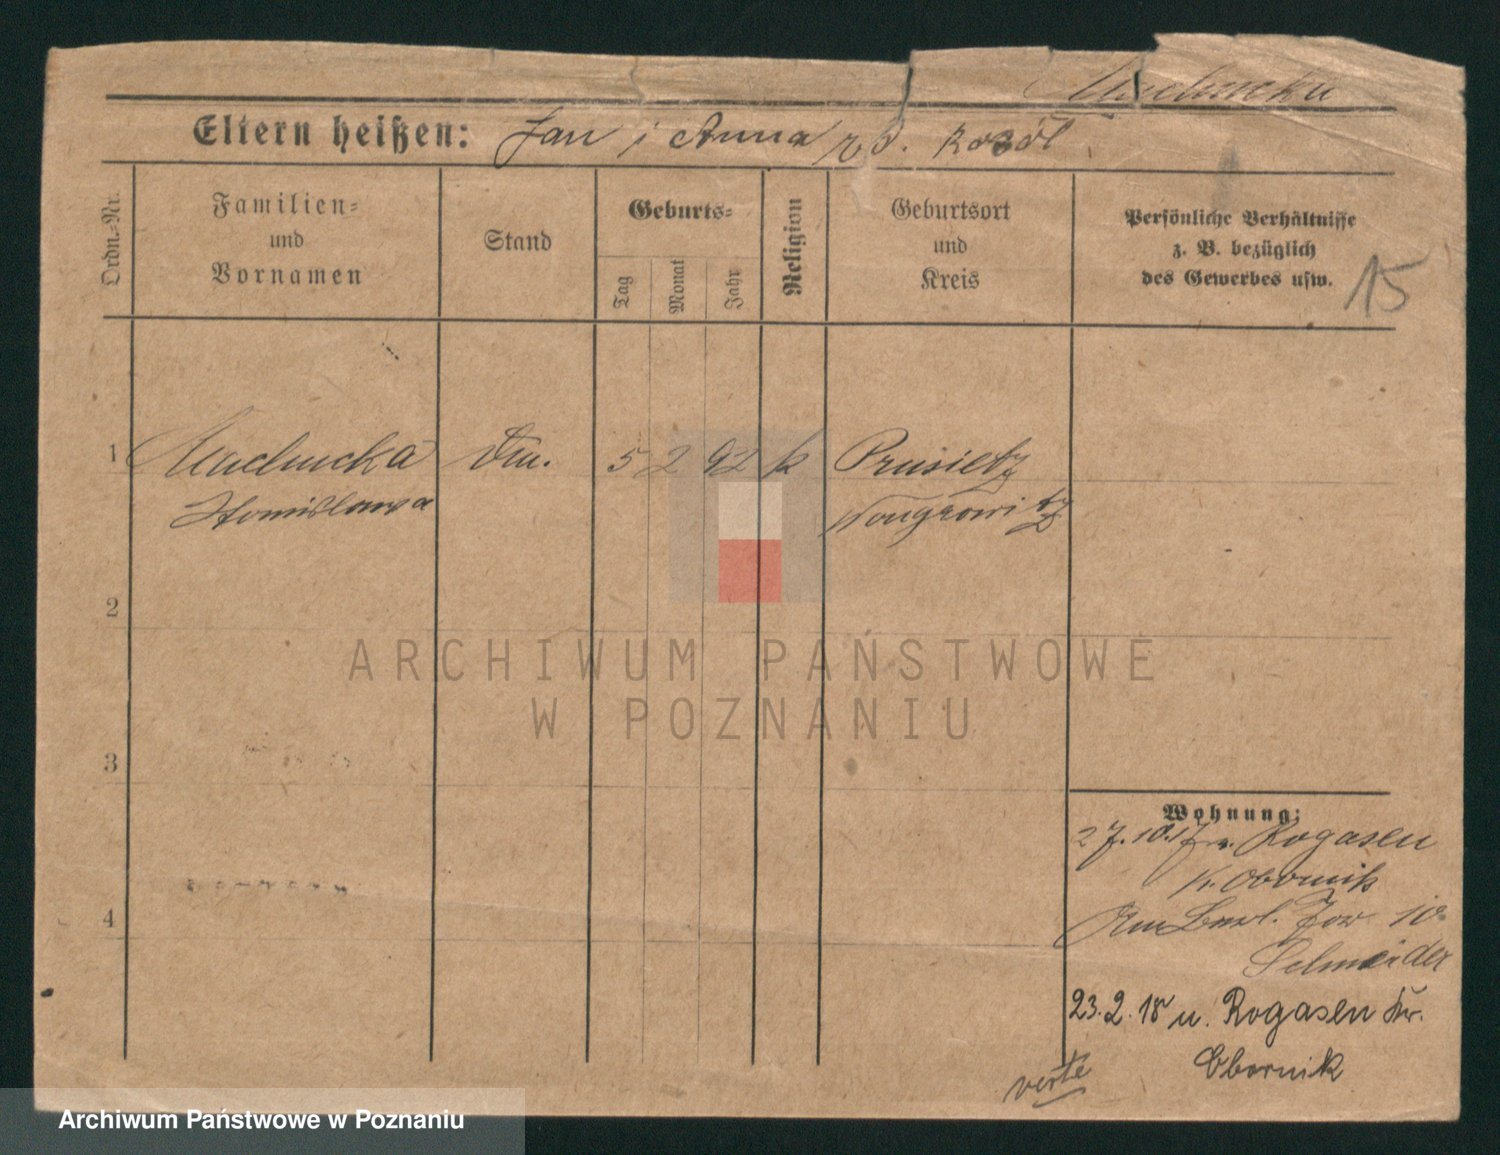 Machnicka
Eltern heißen: Jan i Anna zd. Kozół
Ordn.-Nr.
Familien-
und
Vornamen
Stand
Geburts-
Tag
Monat
Jahr
Religion
Geburtsort
und
Kreis
Persönliche Verhältnisse
z. B. bezüglich
des Gewerbes usw.
15
1 Machnicka 5 2 92 k Prusietz
Stanisława Wongrowitz
2
ARCHIWUM PAŃSTWOWE
W POZNANIU
3
Wohnung:
27.10.17 n. Rogasen
Kr. Obornik
4
10
Schneider
23.2.18 n. Rogasen Kr.
Obornik
verte
Archiwum Państwowe w Poznaniu